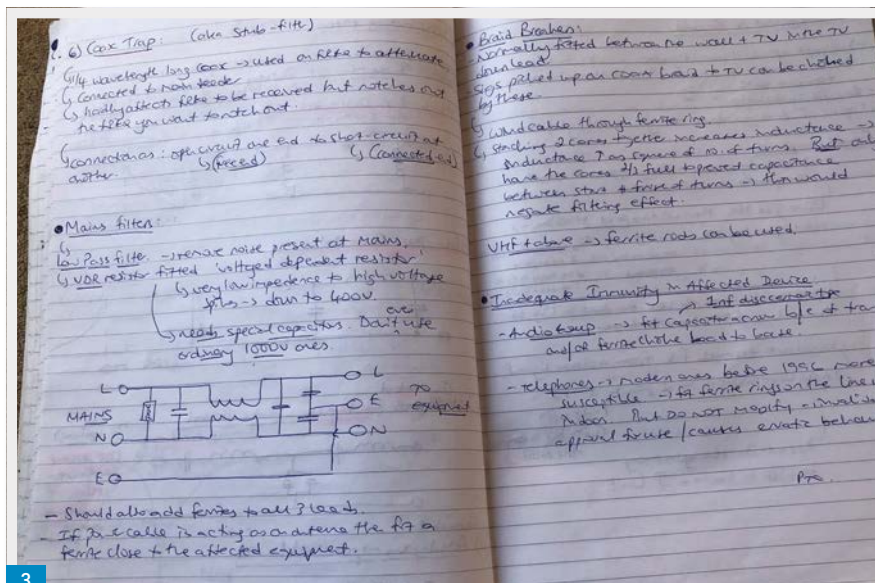 6) Coax Trap: (aka Stub-filter)
1/4 wavelength long coax → used on feeder to attenuate
Connected to main feeder
hardly affects to be received but notches out
the you want to notch out.
connections: open circuit one end to short-circuit at
another. (connected end)
Mains filters:
Low Pass filter → remove noise present at mains.
VDR resistor fitted 'voltage dependent resistor'
very low impedence to high voltage
spikes → down to 400V.
needs special capacitors. Don't use
ordinary 1000V ones.
L L
MAINS E To equipment
N N
E
- Should also add ferrites to all 3 leads.
- If cable is acting as antenna the fit a
ferrite close to the affected equipment.
Braid Breakers:
Normally fitted between the wall + TV in the TV
down lead.
Sigs picked up on coax braid to TV can be choked
by these.
wind cable through ferrite ring.
stacking 2 cores together increases inductance →
inductance ↑ as square of no. of turns. But only
have the cores 2/3 full to prevent capacitance
between start + finish of turns → this would
negate filtering effect.
VHF + above → ferrite rods can be used.
Inadequate Immunity in Affected Device
1nf disc ceramic type
- fit capacitor across b/e of tra
and/or ferrite choke bead to base.
- Telephones → modern ones before 1996 more
susceptible → fit ferrite rings on the line
But DO NOT modify - invalid
approval for use / causes erratic behaviou
PTO.
3